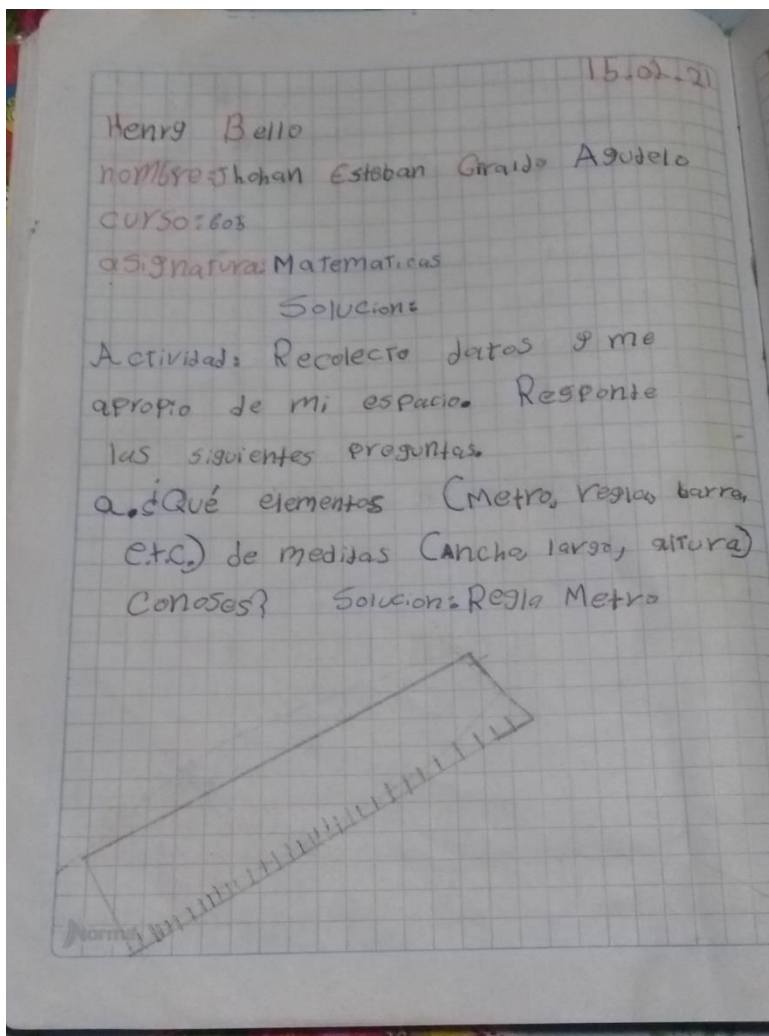 15.02.21
Henry Bello
nombre: Jhohan Esteban Giraldo Agudelo
curso: 605
asignatura: Matematicas
Solucion:
Actividad: Recolecto datos y me
apropio de mi espacio. Responde
las siguientes preguntas.
a. ¿Qué elementos (Metro, reglas, barra,
e.t.c.) de medidas (Ancho, largo, altura)
Conoses? Solucion: Regla Metro
Norma